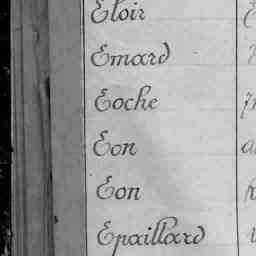 Eloir
Emard
Eoche
Eon
Eon
Epaillard